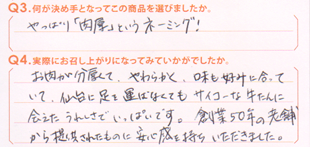 Q3.何が決め手となってこの商品を選びましたか。
やっぱり「肉厚」というネーミング!
Q4.実際にお召し上がりになってみていかがでしたか。
お肉が分厚くて、やわらかく、味も好みに合って
いて、仙台に足を運ばなくてもサイコーな牛たんに
会えたうれしさでいっぱいです。創業50年の老舗
から提供されたものに安心感を持ちいただきました。